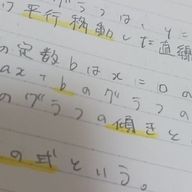 のグラフは、y=
平行移動した直線
の定数bはx=0の
ax+bのグラフの
のグラフの傾きと
の式という。